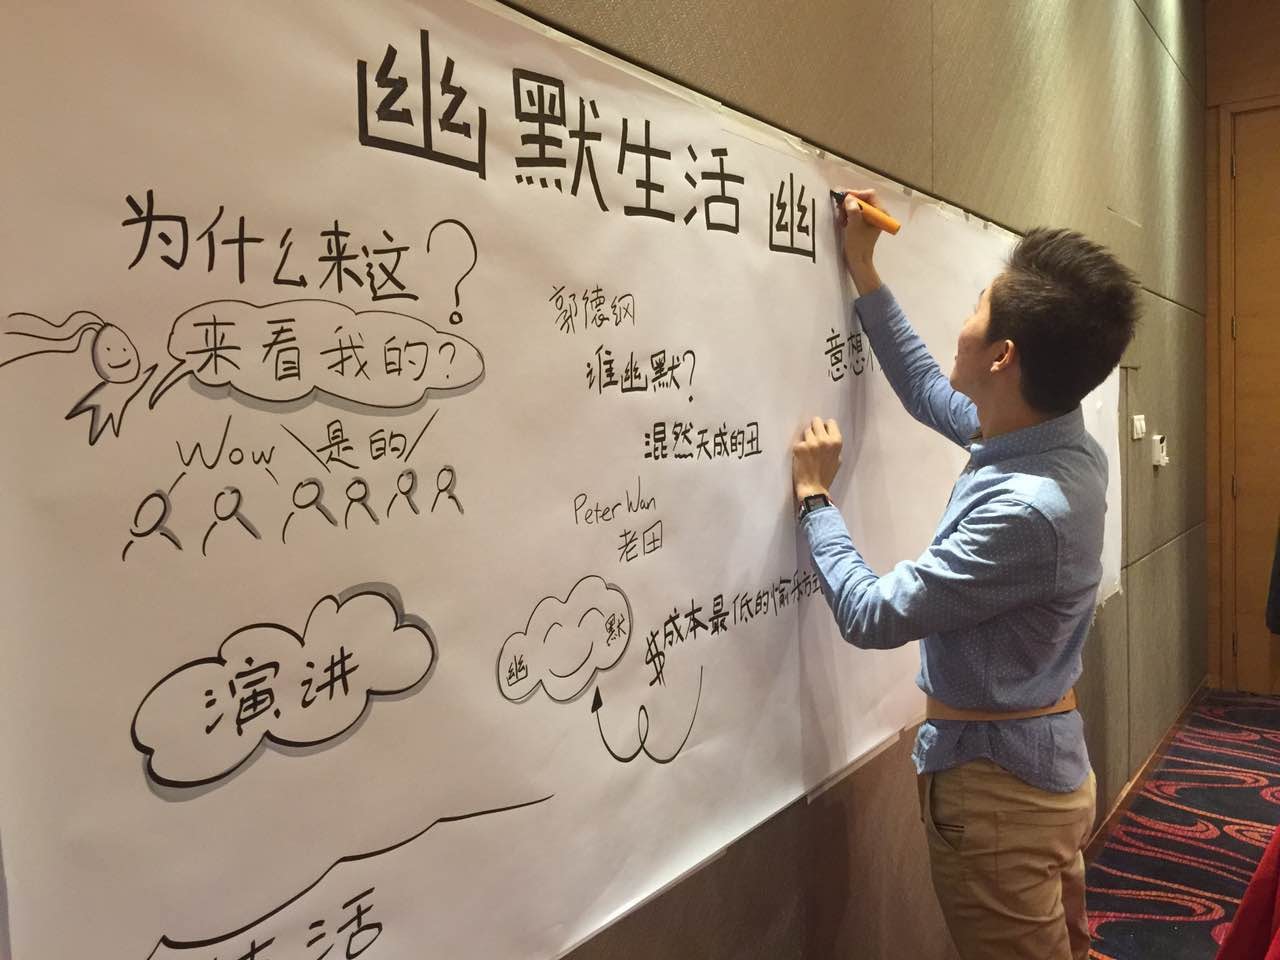 幽默生活 幽
为什么来这?
来看我的?
Wow 是的
演讲
活
郭德纲
谁幽默?
混然天成的丑
Peter Wan
老田
幽 默
$成本最低的愉乐方式
意想